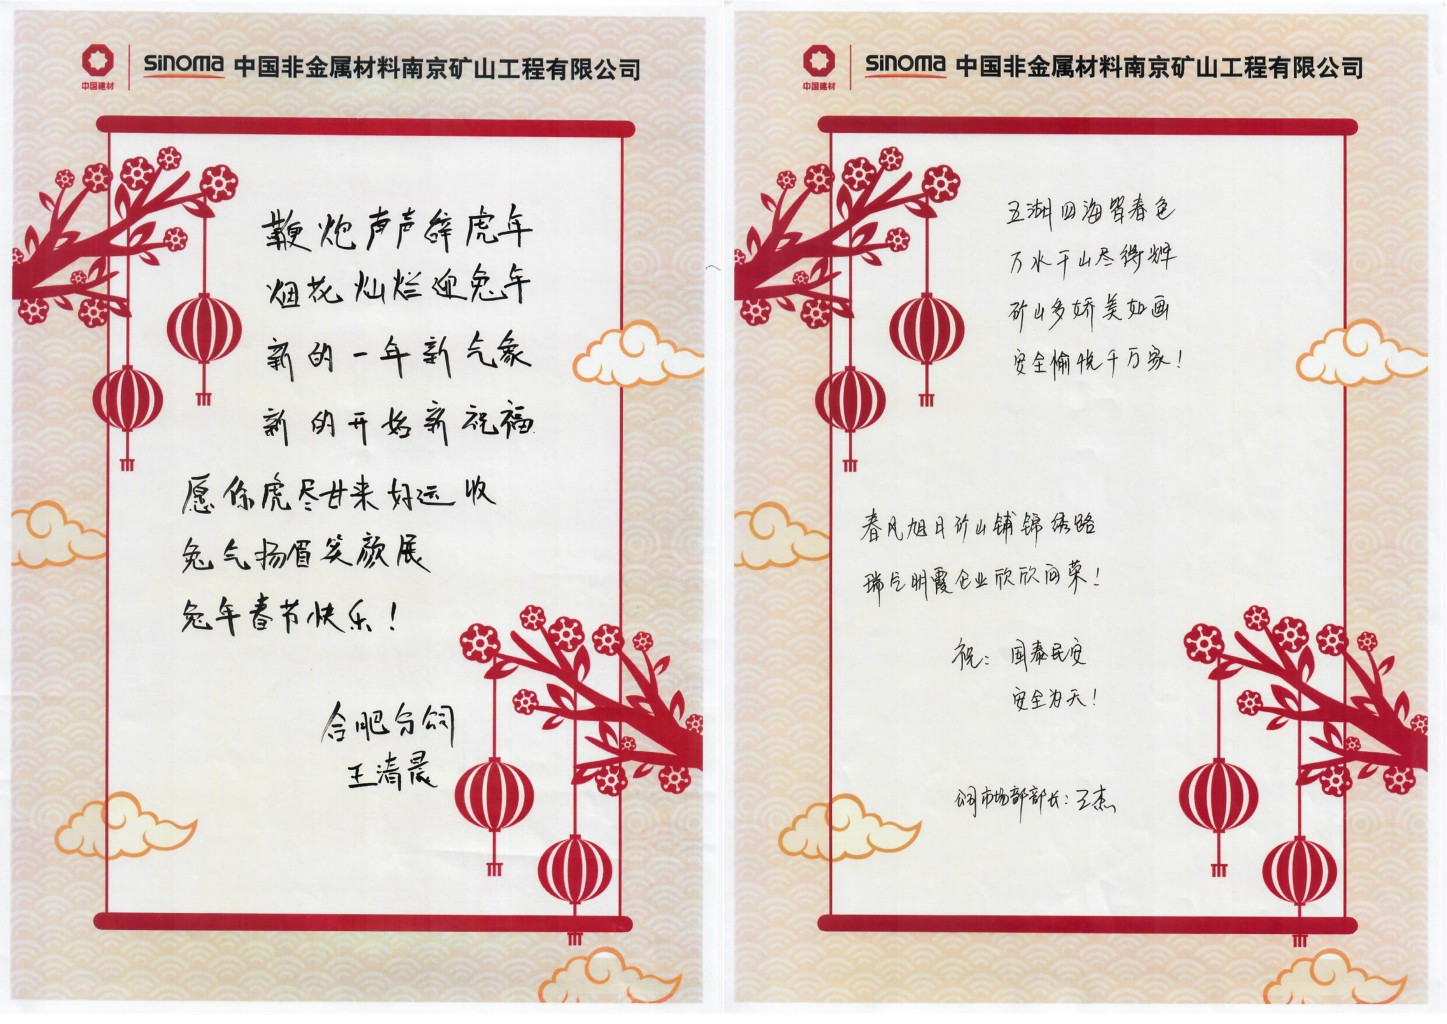 中国建材
sinoma 中国非金属材料南京矿山工程有限公司
鞭炮声声辞虎年
烟花灿烂迎兔年
新的一年新气象
新的开始新祝福
愿你虎尽甘来好运收
兔气扬眉笑颜展
兔年春节快乐！
合肥分公司
王清晨
中国建材
sinoma 中国非金属材料南京矿山工程有限公司
五湖四海皆春色
万水千山尽得辉
矿山多娇美如画
安全愉悦千万家！
春风旭日矿山铺锦绣路
瑞气明霞企业欣欣向荣！
祝：国泰民安
安全为天！
公司市场部部长：王杰